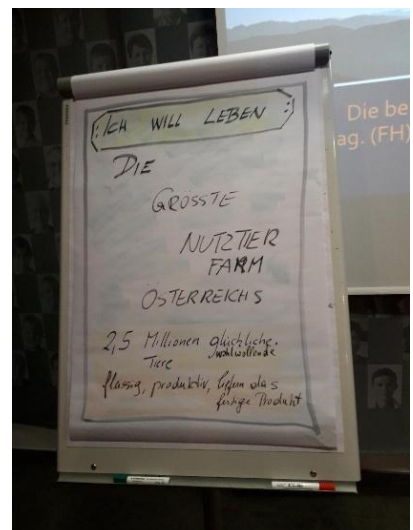 : ICH WILL LEBEN :
DIE
GRÖSSTE
NUTZTIER
FARM
ÖSTERREICHS
2,5 Millionen glückliche,
wohlwollende
Tiere
flassig, produktiv, liefern das
fertige Produkt
Die be
ag. (FH)